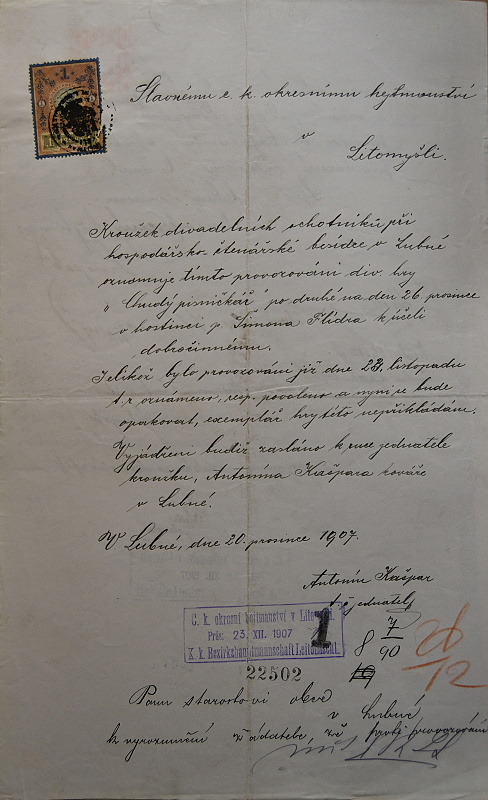 1
Slavnému c. k. okresnímu hejtmanství
v
Litomyšli.
Kroužek divadelních ochotníků při
hospodářsko-čtenářské besídce v Lubné
oznamuje tímto provozování div. hry
"Chudý písničkář" po druhé na den 26. prosince
v hostinci p. Šimona Flídra k účeli
dobročinnému.
Jelikož bylo provozování již dne 24. listopadu
t. r. oznámeno, resp. povoleno a nyní se bude
opakovat, exemplář hry této nepřikládám.
Vyjádření budiž zasláno k ruce jednatele
kroužku, Antonína Kašpara kováře
v Lubné.
V Lubné, dne 20. prosince 1907.
Antonín Kašpar
t. č. jednatel
C. k. okresní hejtmanství v Litomyšli
Präs. 23. XII. 1907
K. k. Bezirkshauptmannschaft Leitomischl
1
22502
8 7/90
19
26/12
Panu starostovi obce
v Lubné
k vyrozumění žadatele, že proti provozování